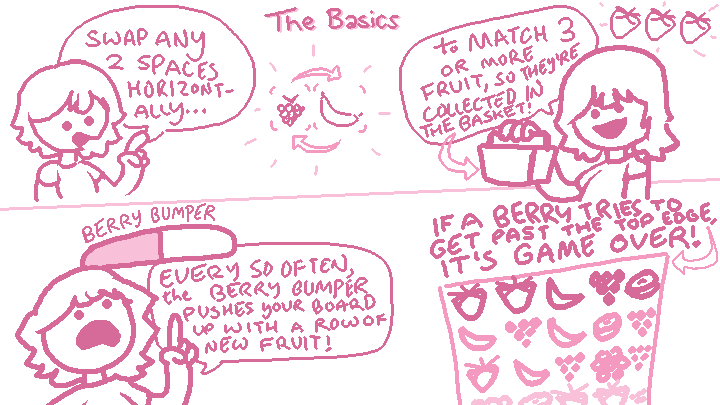 The Basics
SWAP ANY
2 SPACES
HORIZONT-
ALLY...
to MATCH 3
OR MORE
FRUIT, SO THEY'RE
COLLECTED IN
THE BASKET!
BERRY BUMPER
EVERY SO OFTEN,
the BERRY BUMPER
PUSHES YOUR BOARD
UP WITH A ROW OF
NEW FRUIT!
IF A BERRY TRIES TO
GET PAST THE TOP EDGE,
IT'S GAME OVER!